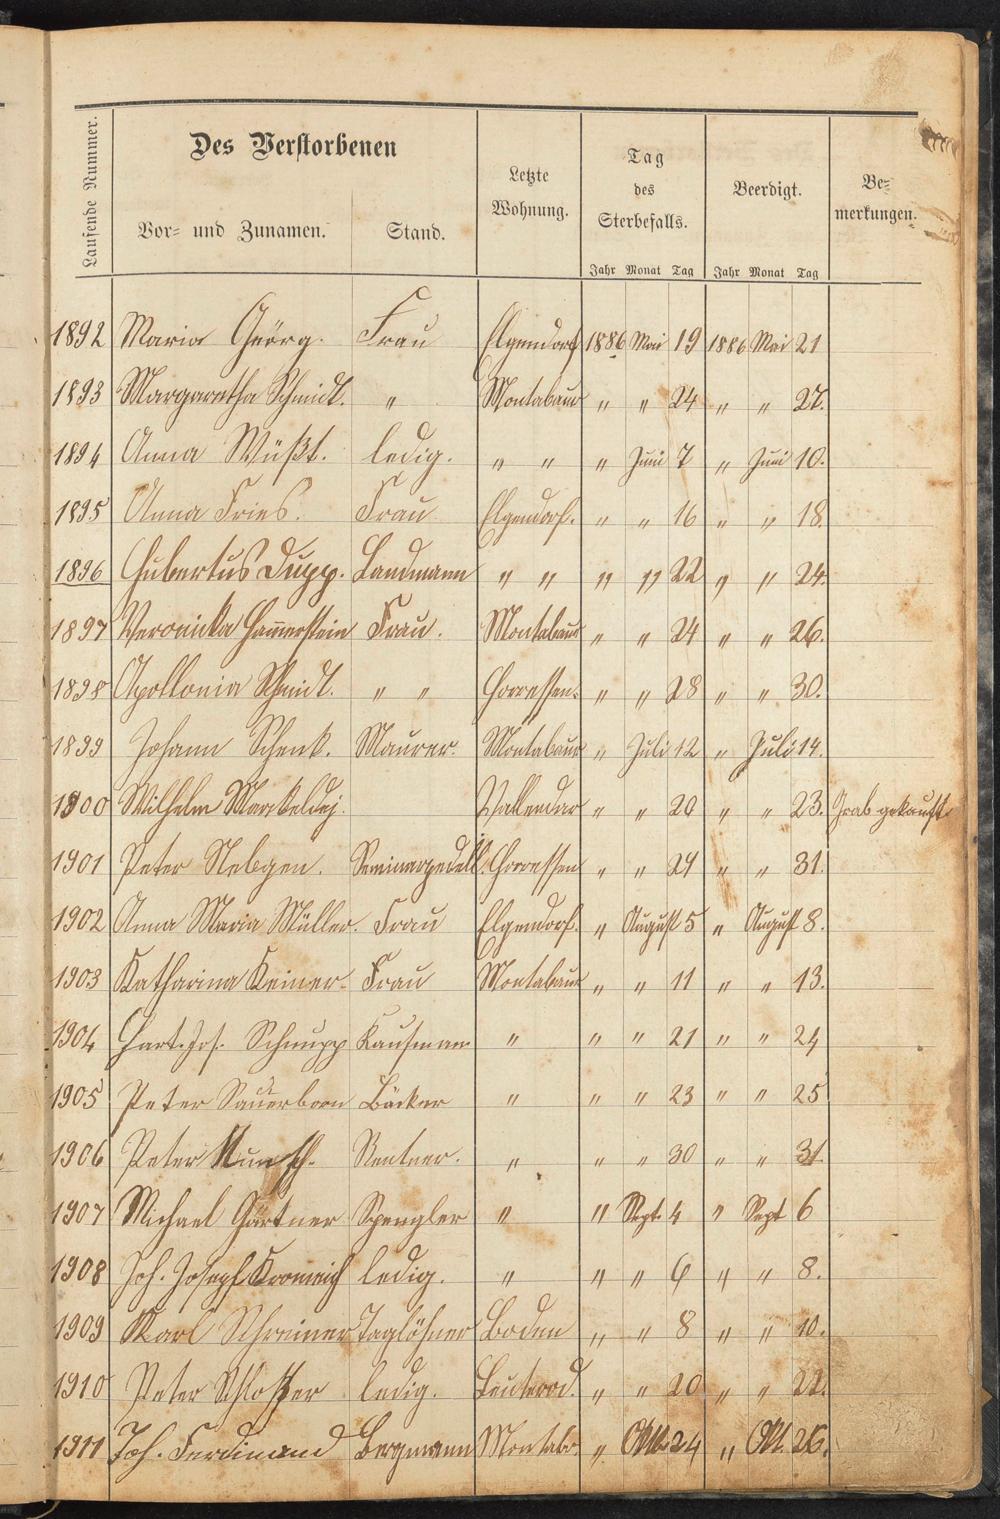 Laufende Nummer.
Des Verstorbenen
Vor- und Zunamen.
Stand.
Letzte
Wohnung.
Tag
des
Sterbefalls.
Jahr Monat Tag
Beerdigt.
Jahr Monat Tag
Be-
merkungen.
1892 Maria Georg. Frau Elgendorf 1886 Mai 19 1886 Mai 21
1893 Margaretha Schmidt. " Montabaur " " 24 " " 27.
1894 Anna Wüßt. ledig. " " " Juni 7 " Juni 10.
1895 Anna Fries. Frau Elgendorf. " " 16 " " 18.
1896 Hubertus Dupp. Landmann " " " " 22 " " 24.
1897 Veronicka Ham̅erstein Frau. Montabaur " " 24 " " 26.
1898 Apollonia Schmidt. " " Horressen. " " 28 " " 30.
1899 Johann Schenk. Maurer. Montabaur " Juli 12 " Juli 14.
1900 Wilhelm Vallendar " " 20 " " 23. Grab gekauft
1901 Peter Nebgen. Seminarpedell. Horressen " " 29 " " 31.
1902 Anna Maria Müller. Frau Elgendorf. " August 5 " August 8.
1903 Katharina Keiner. Frau Montabaur " " 11 " " 13.
1904 Jos. Schnupp Kaufmann " " " 21 " " 24
1905 Peter Sauerborn Bäcker " " " 23 " " 25
1906 Peter Rentner. " " " 30 " " 31
1907 Michael Gärtner Spengler " " Sept. 4 " Sept 6
1908 Joh. Joseph ledig. " " " 6 " " 8.
1909 Karl Schreiner Taglöhner Boden " " 8 " " 10.
1910 Peter Schlosser ledig. Leuterod. " " 20 " " 22.
1911 Joh. Ferdinand Bergmann Montabr. " Okt. 24 " Okt. 26.